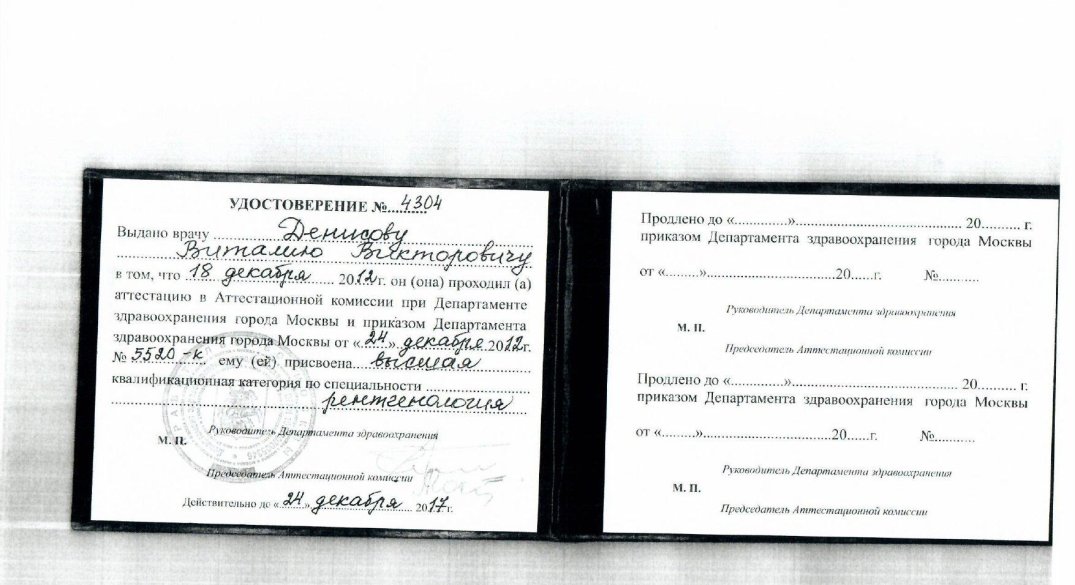 УДОСТОВЕРЕНИЕ № 4304
Выдано врачу Денисову
Виталию Викторовичу
в том, что 18 декабря 2012 г. он (она) проходил (а)
аттестацию в Аттестационной комиссии при Департаменте
здравоохранения города Москвы и приказом Департамента
здравоохранения города Москвы от «24» декабря 2012г.
№ 5520-к ему (ей) присвоена высшая
квалификационная категория по специальности
рентгенология
Руководитель Департамента здравоохранения
М. П.
Председатель Аттестационной комиссии
Действительно до «24» декабря 2017г.
Продлено до «.............».......................................... 20.......... г.
приказом Департамента здравоохранения города Москвы
от «.........»................................20......г. №...........
Руководитель Департамента здравоохранения
М. П.
Председатель Аттестационной комиссии
Продлено до «.............».......................................... 20.......... г.
приказом Департамента здравоохранения города Москвы
от «.........»................................20......г. №...........
Руководитель Департамента здравоохранения
М. П.
Председатель Аттестационной комиссии